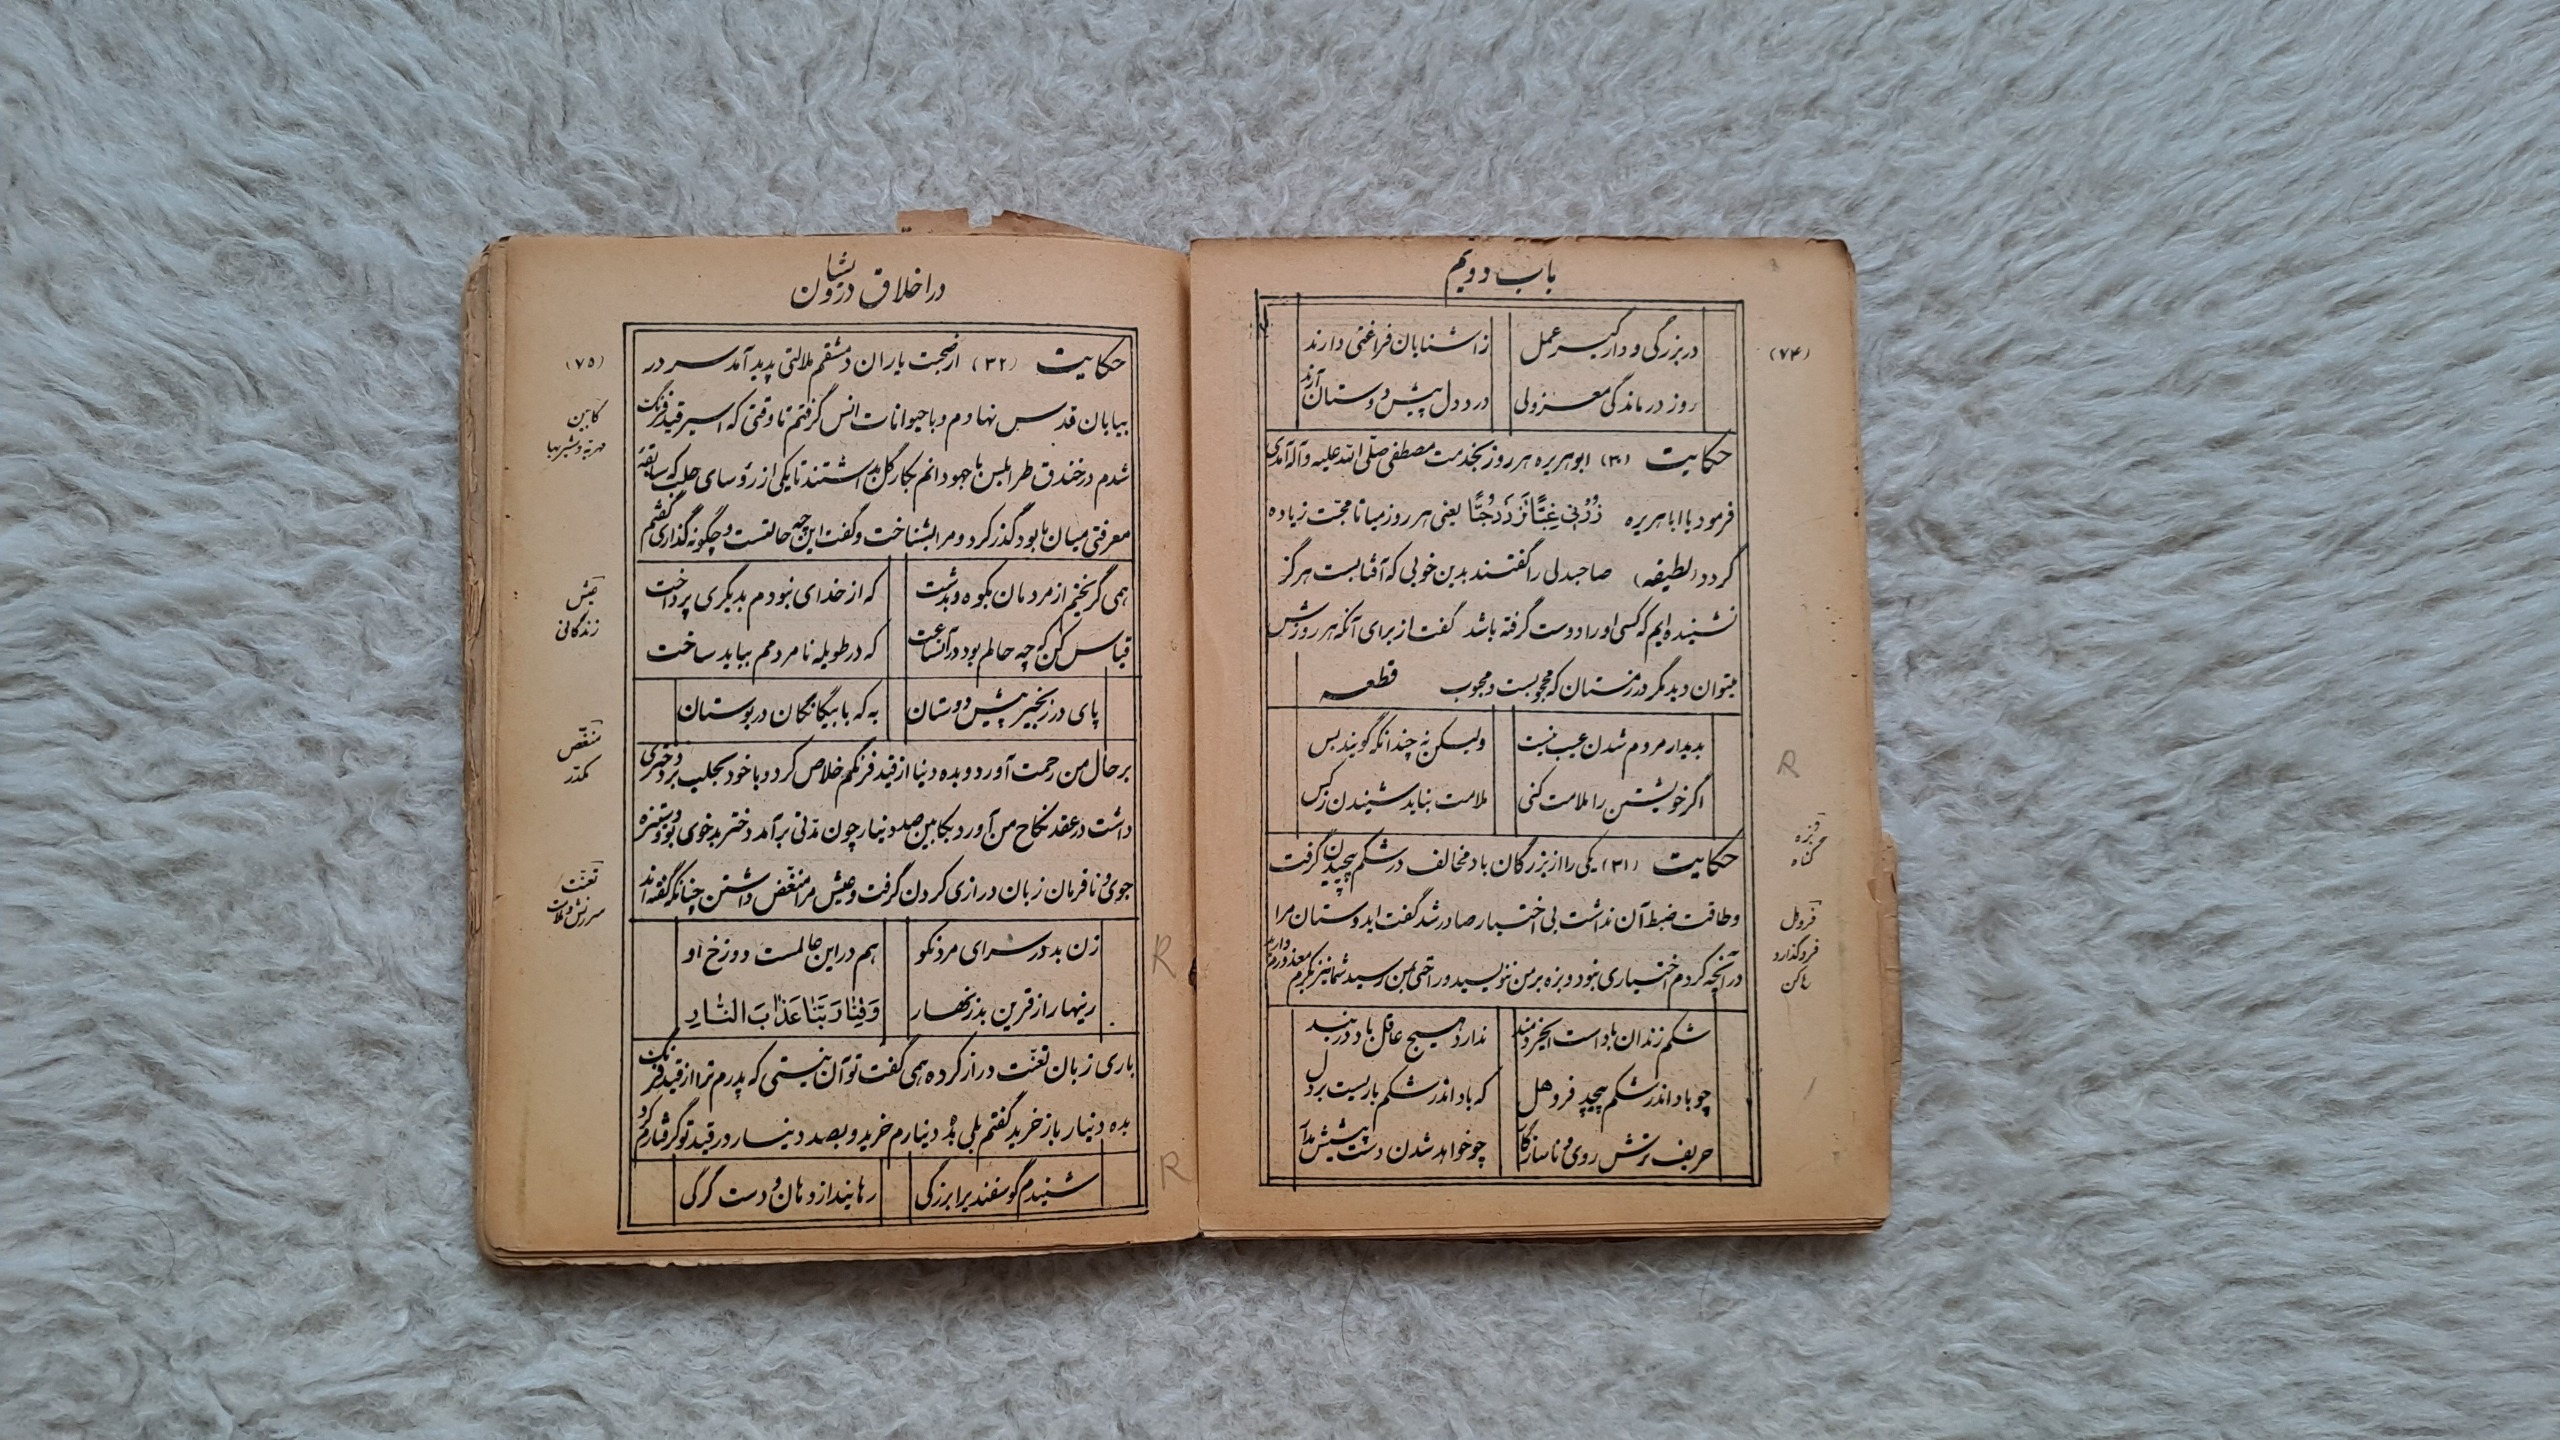 باب دویم
(۷۴)
در بزرگی و دار گیر عمل زاشنایان فراغتی دارند
روز درماندگی معزولی درد دل پیش دوستان آرند
حکایت (۳۰) ابوهریره هر روز بخدمت مصطفی صلی الله علیه و آله آمدی
فرمود یا اباهریره زُرْنی غِبًّا تَزْدَدْ حُبًّا یعنی هر روز میا تا محبت زیاده
گردد (لطیفه) صاحبدلی را گفتند بدین خوبی که آفتابست هرگز
نشنیده‌ایم که کسی او را دوست گرفته باشد گفت از برای آنکه هر روزش
میتوان دید مگر در زمستان که محجوبست و محبوب قطعه
بدیدار مردم شدن عیب نیست ولیکن نه چندانکه گویند بس
اگر خویشتن را ملامت کنی ملامت نباید شنیدن ز کس
حکایت (۳۱) یکی را از بزرگان باد مخالف در شکم پیچیدن گرفت
و طاقت ضبط آن نداشت بی اختیار صادر شد گفت ایدوستان مرا
در آنچه کردم اختیاری نبود و بزه بر من ننویسید و راحتی بمن رسید شما نیز بکرم معذورم دارید
شکم زندان باد است ایخردمند ندارد هیچ عاقل باد در بند
چو باد اندر شکم پیچد فرو هل که باد اندر شکم باریست بر دل
حریف ترش روی و ناسازگار چو خواهد شدن دست پیشش مدار
R
وزره
گناه
فروهل
فروگذارد
رها کن
در اخلاق درویشان
(۷۵)
حکایت (۳۲) از صحبت یاران دمشقم ملالتی پدید آمد سر در
بیابان قدس نهادم و با حیوانات انس گرفتم تا وقتی که اسیر قید فرنگ
شدم در خندق طرابلس با جهودانم بکار گل بداشتند تا یکی از رؤسای حلب که سابقهٔ
معرفتی میان ما بود گذر کرد و مرا بشناخت و گفت این چه حالتست و چگونه گذاری گفتم
همی گریختم از مردمان بکوه و بدشت که از خدای نبودم بدیگری پرداخت
قیاس کن که چه حالم بود در آنساعت که در طویله نامردمم بباید ساخت
پای در زنجیر پیش دوستان به که با بیگانگان در بوستان
بر حال من رحمت آورد و بده دینار از قید فرنگم خلاص کرد و با خود بحلب برد دختری
داشت در عقد نکاح من آورد بکابین صد دینار چون مدتی برآمد دختر بدخوی بود و ستیزه
جوی و نافرمان زبان درازی کردن گرفت و عیش مرا منغض داشتن چنانکه گفته‌اند
زن بد در سرای مرد نکو هم در این عالمست دوزخ او
زینهار از قرین بد زنهار وَقِنا رَبَّنا عَذابَ النّارِ
باری زبان تعنّت دراز کرده همی گفت تو آن نیستی که پدرم ترا از قید فرنگ
بده دینار باز خرید گفتم بلی بده دینارم خرید و بصد دینار در قید تو گرفتارم کرد
شنیدم گوسفندیرا بزرگی رهانید از دهان و دست گرگی
R
R
کابین
مهریه و شیربها
عیش
زندگانی
منغّص
مکدّر
تعنّت
سرزنش و ملامت